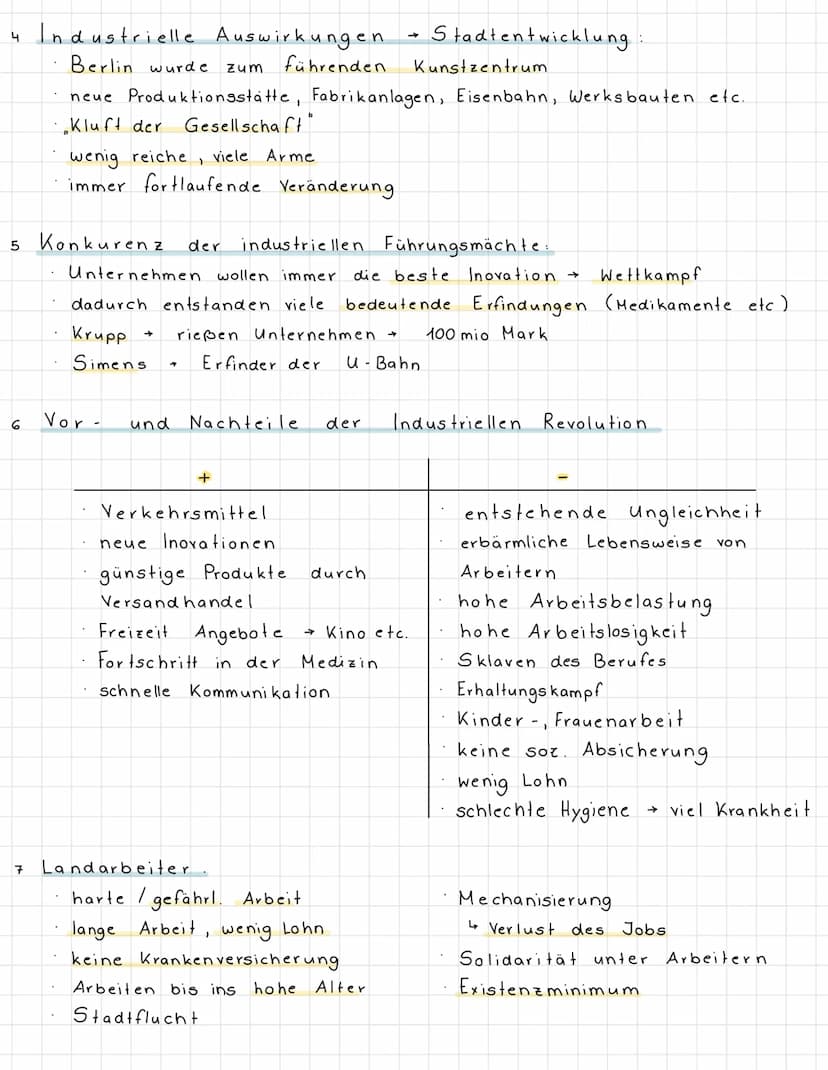 4 Industrielle Auswirkungen → Stadtentwicklung:
· Berlin wurde zum führenden Kunstzentrum
· neue Produktionsstätte, Fabrikanlagen, Eisenbahn, Werksbauten etc.
· „Kluft der Gesellschaft"
· wenig reiche, viele Arme
· immer fortlaufende Veränderung
5 Konkurenz der industriellen Führungsmächte:
· Unternehmen wollen immer die beste Inovation → Wettkampf
· dadurch entstanden viele bedeutende Erfindungen (Medikamente etc)
· Krupp → rießen Unternehmen → 100 mio Mark
· Simens → Erfinder der U-Bahn
6 Vor- und Nachteile der Industriellen Revolution
+
· Verkehrsmittel
· neue Inovationen
· günstige Produkte durch
Versandhandel
· Freizeit Angebote → Kino etc.
· Fortschritt in der Medizin
· schnelle Kommunikation
-
· entstehende Ungleichheit
· erbärmliche Lebensweise von
Arbeitern
· hohe Arbeitsbelastung
· hohe Arbeitslosigkeit
· Sklaven des Berufes
· Erhaltungskampf
· Kinder-, Frauenarbeit
· keine soz. Absicherung
· wenig Lohn
· schlechte Hygiene → viel Krankheit
7 Landarbeiter.
· harte / gefährl. Arbeit
· lange Arbeit, wenig Lohn
· keine Krankenversicherung
· Arbeiten bis ins hohe Alter
· Stadtflucht
· Mechanisierung
↳ Verlust des Jobs
· Solidarität unter Arbeitern
· Existenzminimum